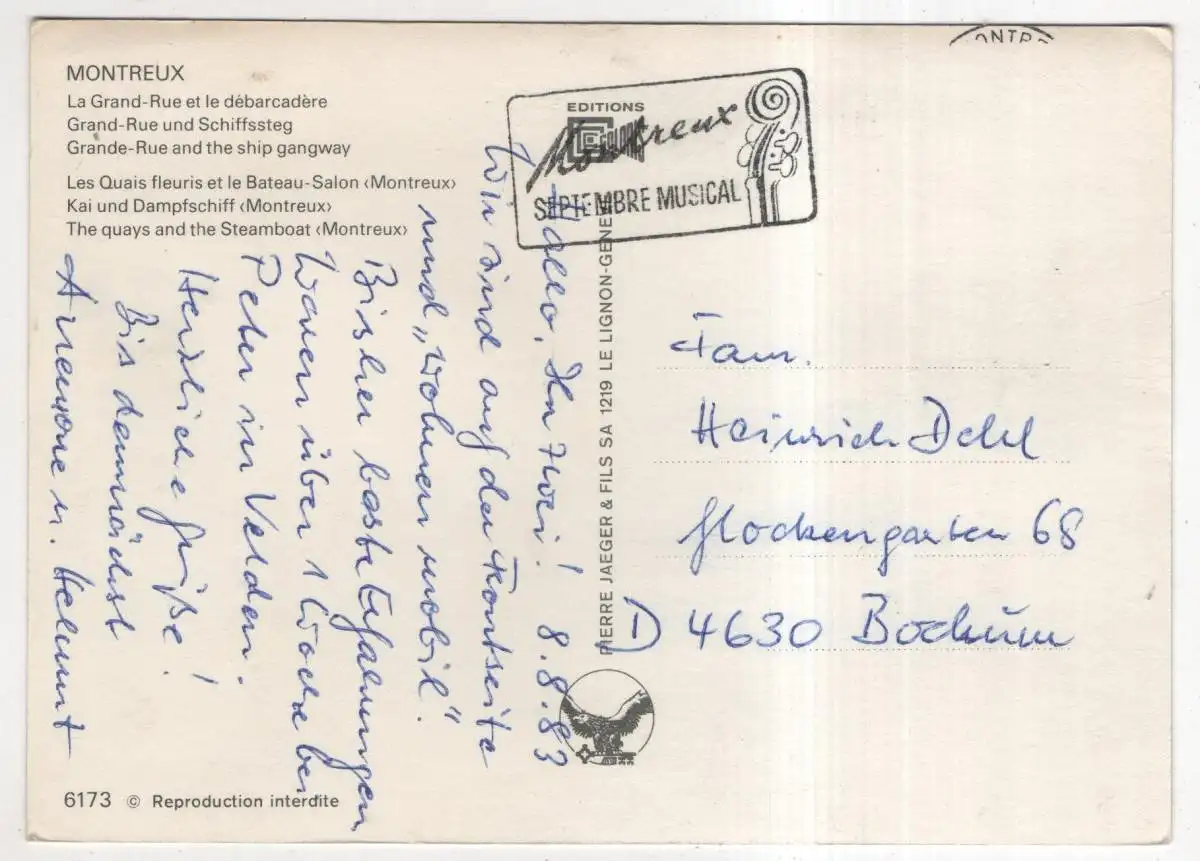 MONTREUX
La Grand-Rue et le débarcadère
Grand-Rue und Schiffssteg
Grande-Rue and the ship gangway
Les Quais fleuris et le Bateau-Salon ‹Montreux›
Kai und Dampfschiff ‹Montreux›
The quays and the Steamboat ‹Montreux›
EDITIONS
Montreux
SEPTEMBRE MUSICAL
Hallo, Ihr zwei! 8.8.83
Wir sind auf der Frontseite
und „Wohnen mobil".
Bisher beste Erfahrungen
Waren über 1 Woche bei
Peter in Velden.
Herzliche Grüße!
Bis demnächst
u. Helmut
PIERRE JAEGER & FILS SA 1219 LE LIGNON-GENE
Fam.
Heinrich Dehl
Glockengarten 68
D 4630 Bochum
6173 © Reproduction interdite